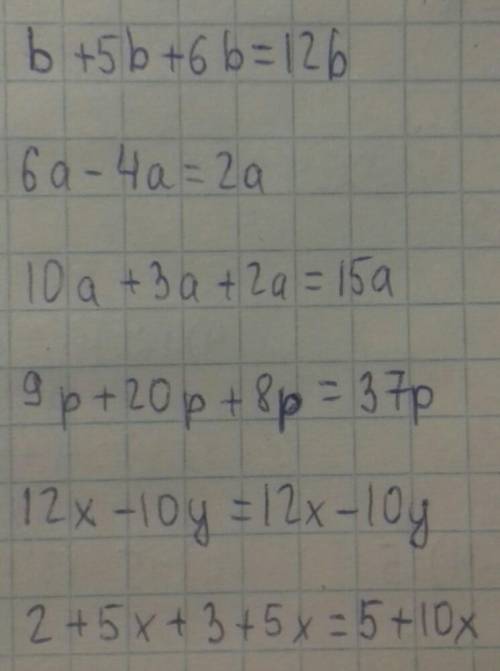 b + 5b + 6b = 12b
6a - 4a = 2a
10a + 3a + 2a = 15a
9p + 20p + 8p = 37p
12x - 10y = 12x - 10y
2 + 5x + 3 + 5x = 5 + 10x